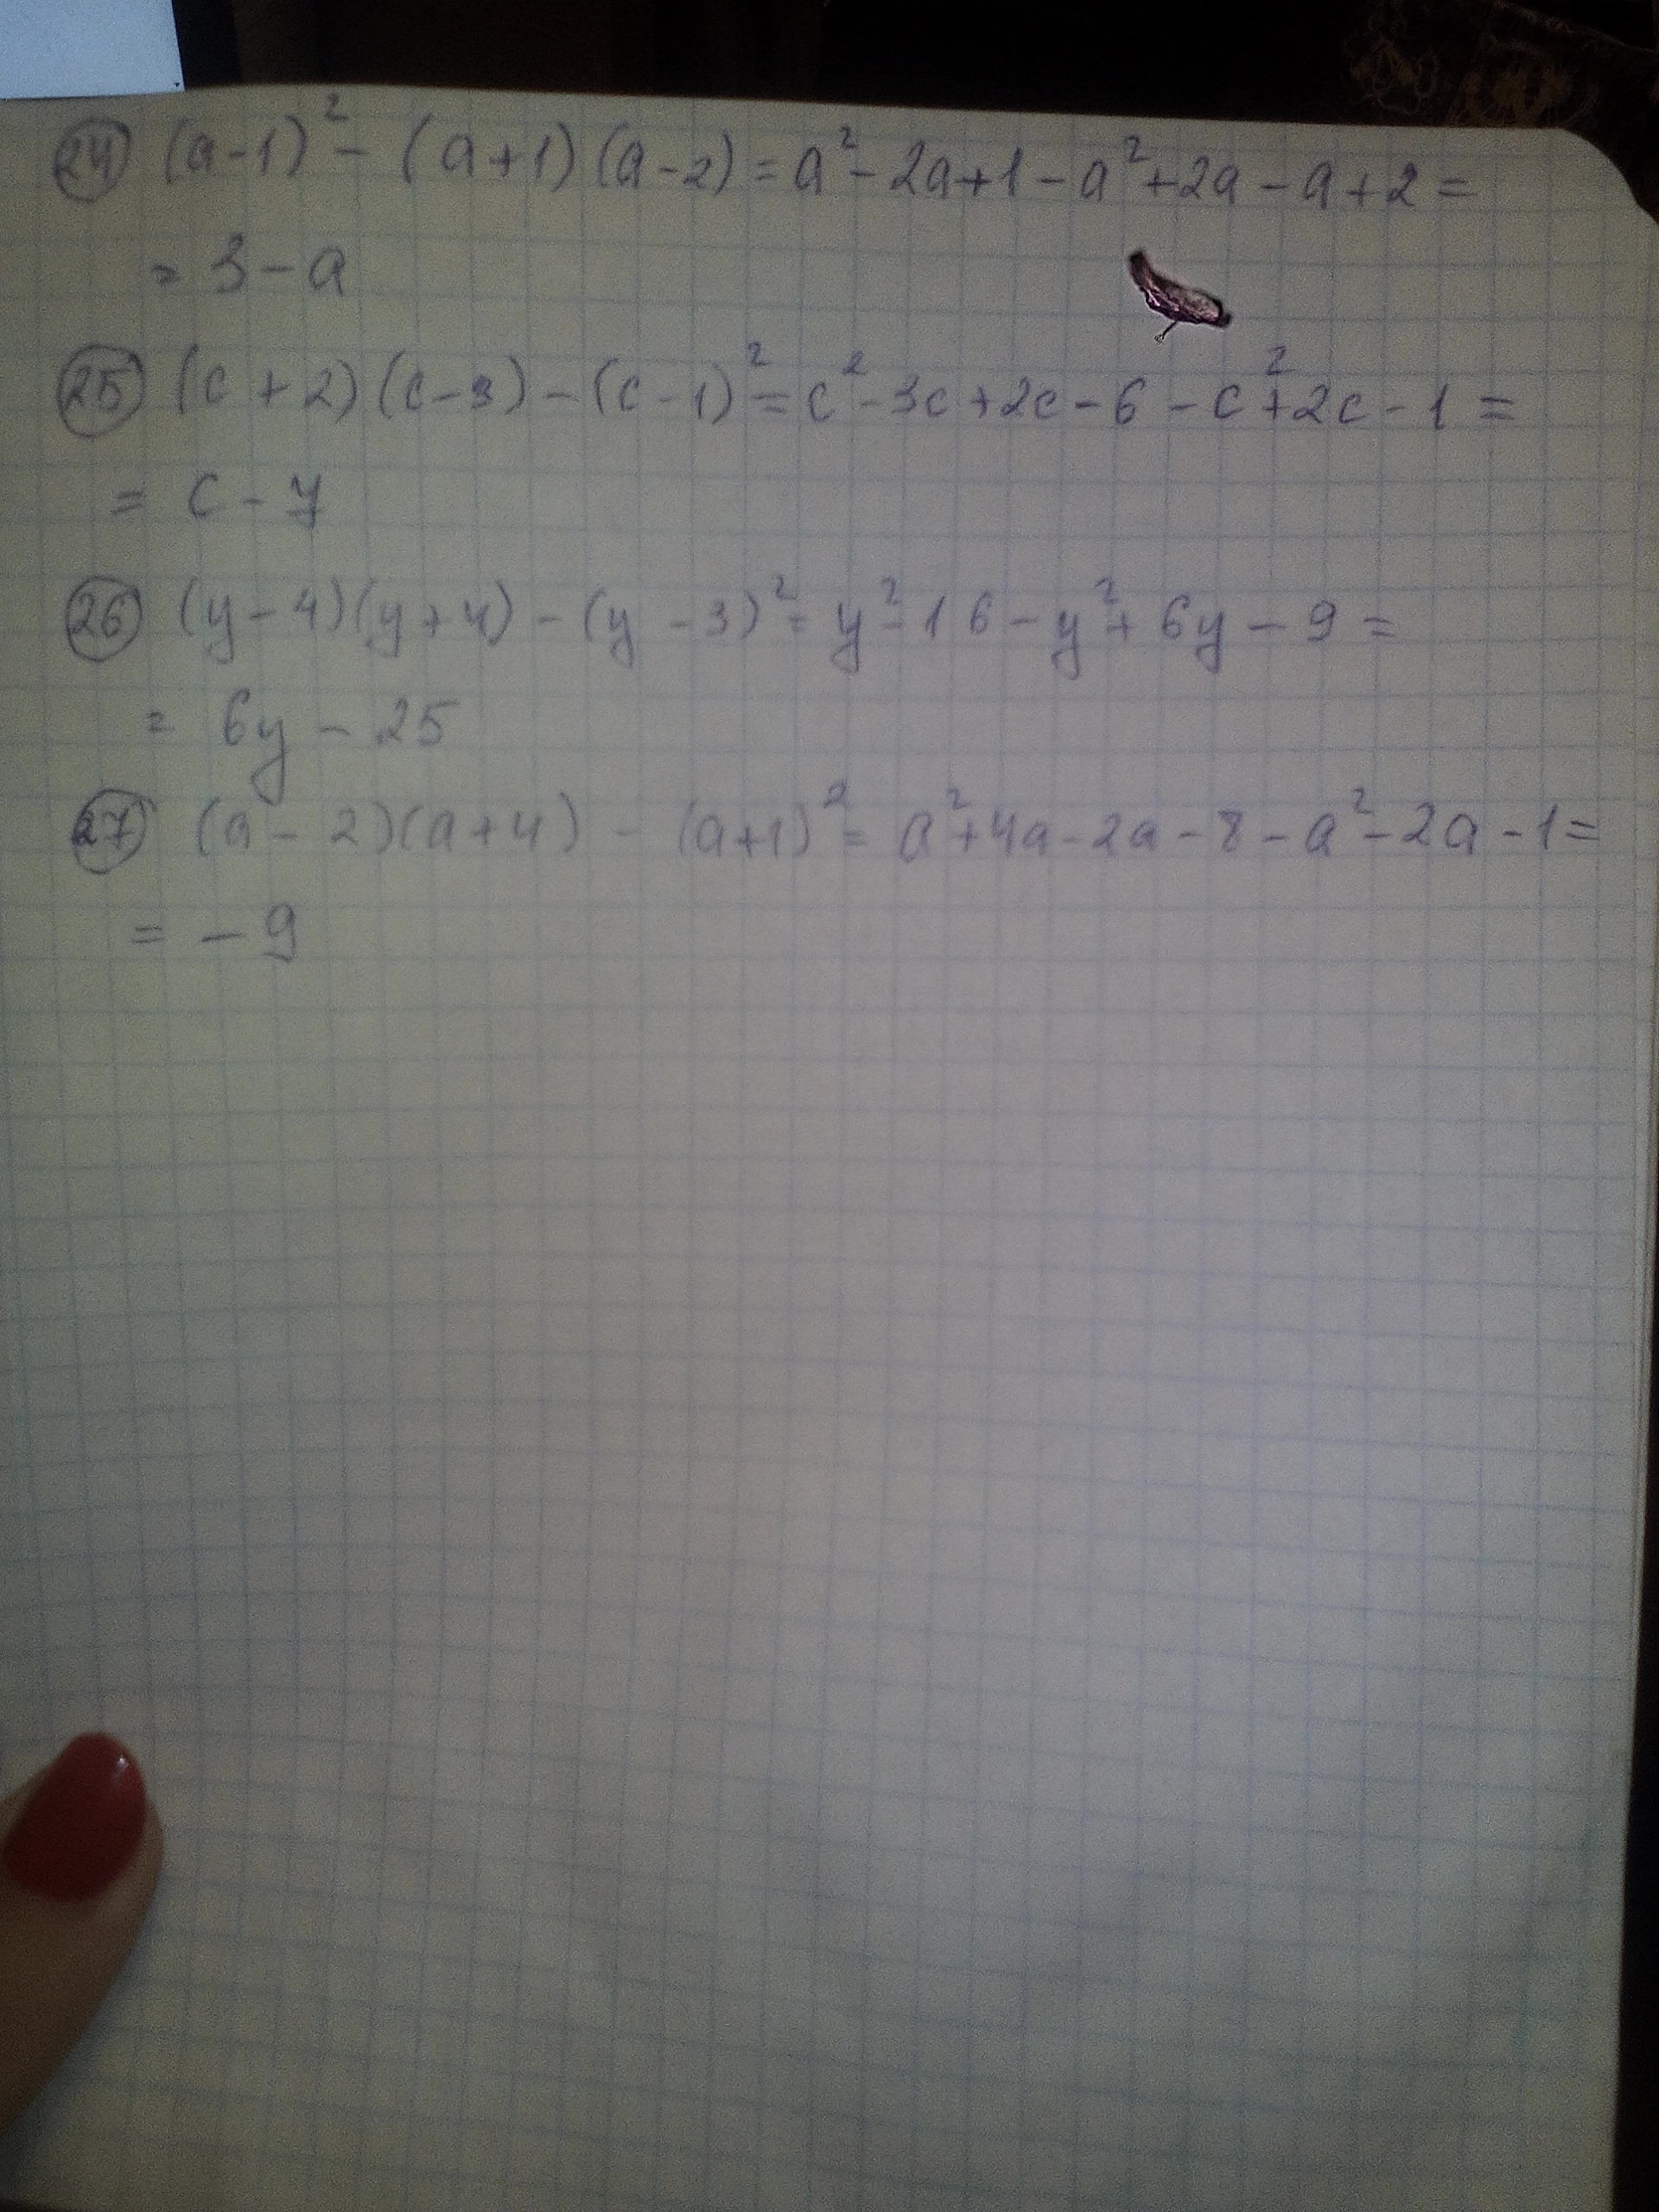 24 (a-1)² - (a+1)(a-2) = a² - 2a+1 - a² +2a - a + 2 =
= 3 - a
25 (c + 2)(c - 3) - (c - 1)² = c² - 3c + 2c - 6 - c² + 2c - 1 =
= c - 7
26 (y - 4)(y + 4) - (y - 3)² = y² - 16 - y² + 6y - 9 =
= 6y - 25
27 (a - 2)(a + 4) - (a+1)² = a² + 4a - 2a - 8 - a² - 2a - 1 =
= - 9